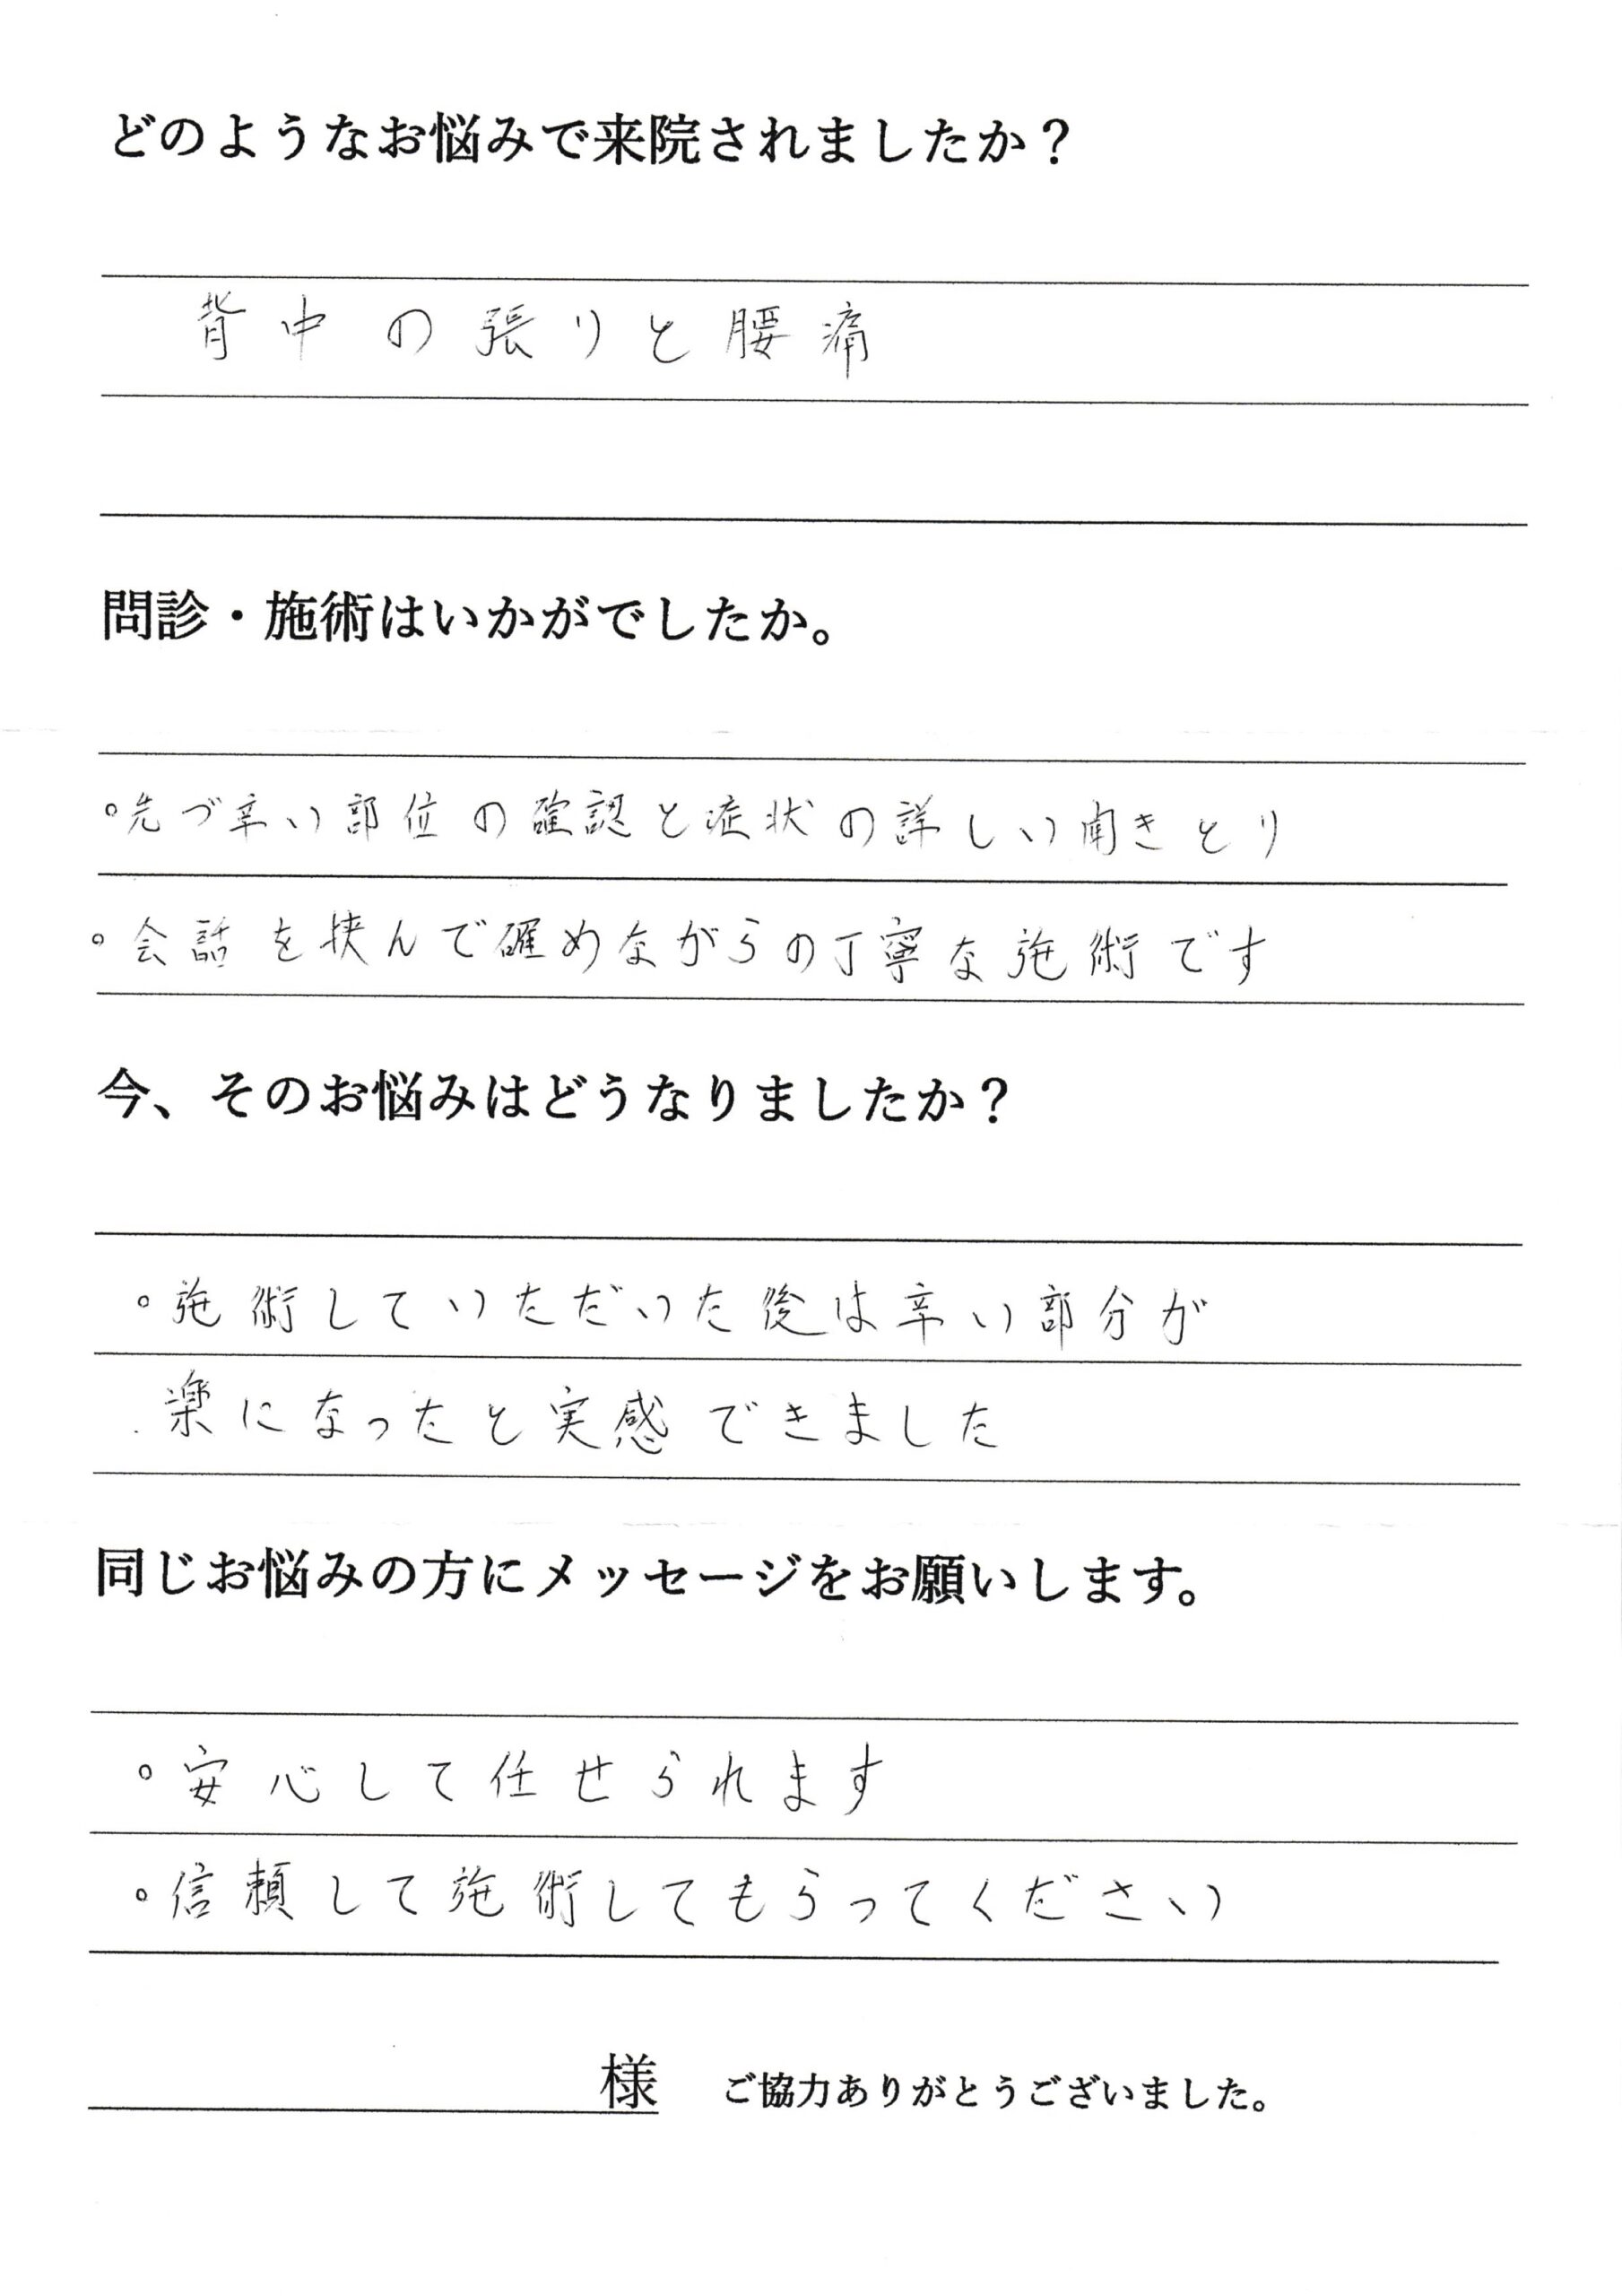 どのようなお悩みで来院されましたか？
背中の張りと腰痛
問診・施術はいかがでしたか。
。先づ辛い部位の確認と症状の詳しい聞きとり
。会話を挟んで確めながらの丁寧な施術です
今、そのお悩みはどうなりましたか？
。施術していただいた後は辛い部分が
楽になったと実感できました
同じお悩みの方にメッセージをお願いします。
。安心して任せられます
。信頼して施術してもらってください
様 ご協力ありがとうございました。